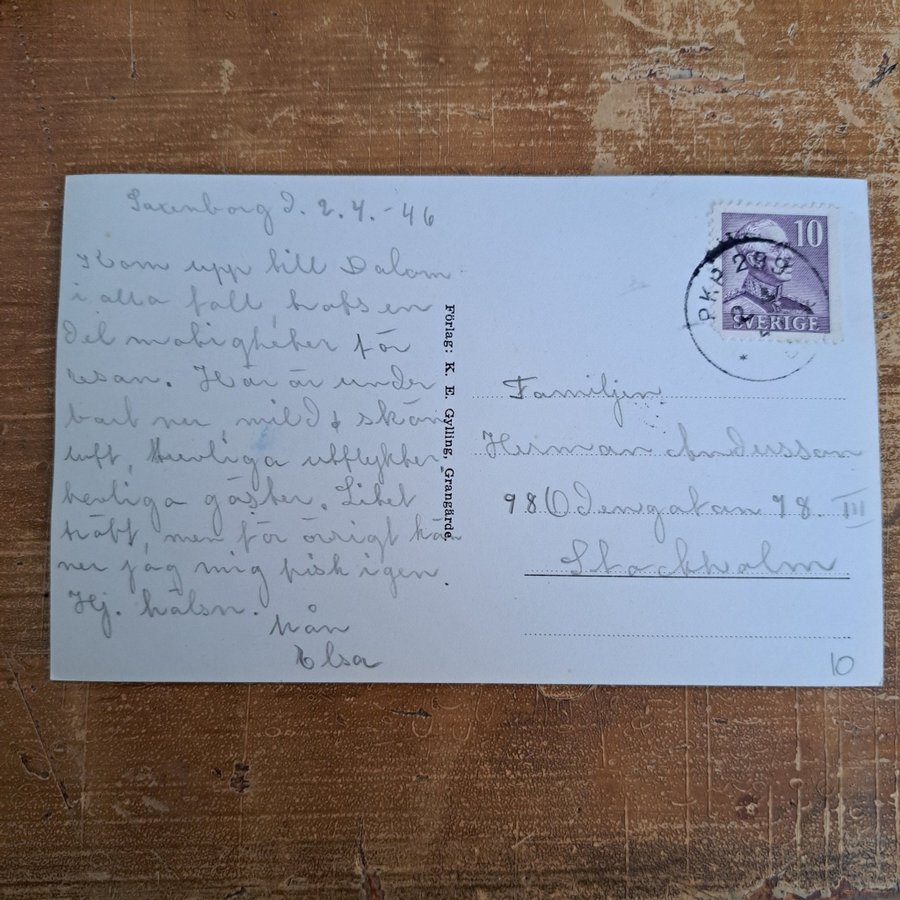 Saxenborg d. 2.4.-46
Kom upp till Dalom
i alla fall, trots en
del mabigheter för
resan. Här är under
bart ner, mild & skön
luft, Huvliga utflykter,
hevliga gäster. Litet
trött, men för övrigt kän
ner jag mig pisk igen.
Hj. hälsn.
från
Elsa
Förlag: K. E. Gylling, Grangärde.
10
SVERIGE
PKP 299
Familjen
Herman Andersson
98 Odengatan 78. III
Stockholm
10